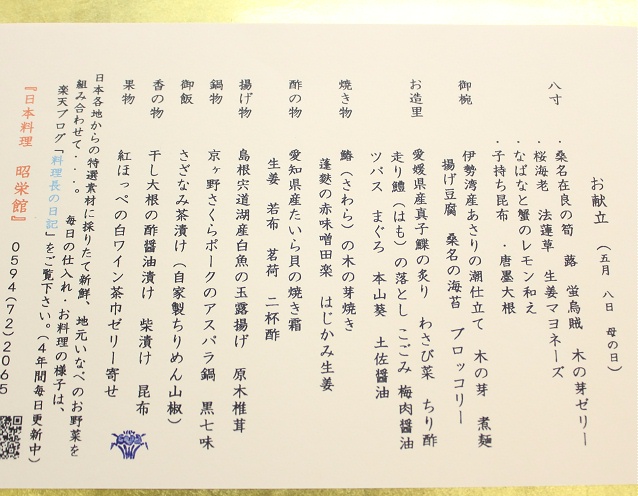 お献立 (五月 八日 母の日)
八寸
・桑名在良の筍 蕗 蛍烏賊 木の芽ゼリー
・桜海老 法蓮草 生姜マヨネーズ
・なばなと蟹のレモン和え
・子持ち昆布 ・唐墨大根
御椀
伊勢湾産あさりの潮仕立て 木の芽 煮麺
揚げ豆腐 桑名の海苔 ブロッコリー
お造里
愛媛県産真子鰈の炙り わさび菜 ちり酢
走り鱧(はも)の落とし こごみ 梅肉醤油
ツバス まぐろ 本山葵 土佐醤油
焼き物
鰆(さわら)の木の芽焼き
蓬麩の赤味噌田楽 はじかみ生姜
酢の物
愛知県産たいら貝の焼き霜
生姜 若布 茗荷 二杯酢
揚げ物
島根宍道湖産白魚の玉露揚げ 原木椎茸
鍋物
京ヶ野さくらポークのアスパラ鍋 黒七味
御飯
さざなみ茶漬け(自家製ちりめん山椒)
香の物
干し大根の酢醤油漬け 柴漬け 昆布
果物
紅ほっぺの白ワイン茶巾ゼリー寄せ
日本各地からの特選素材に採りたて新鮮、地元いなべのお野菜を
組み合わせて・・・。 毎日の仕入れ・お料理の様子は、
楽天ブログ「料理長の日記」をご覧下さい。(4年間毎日更新中)
『日本料理 昭栄館』 0594(72)2065